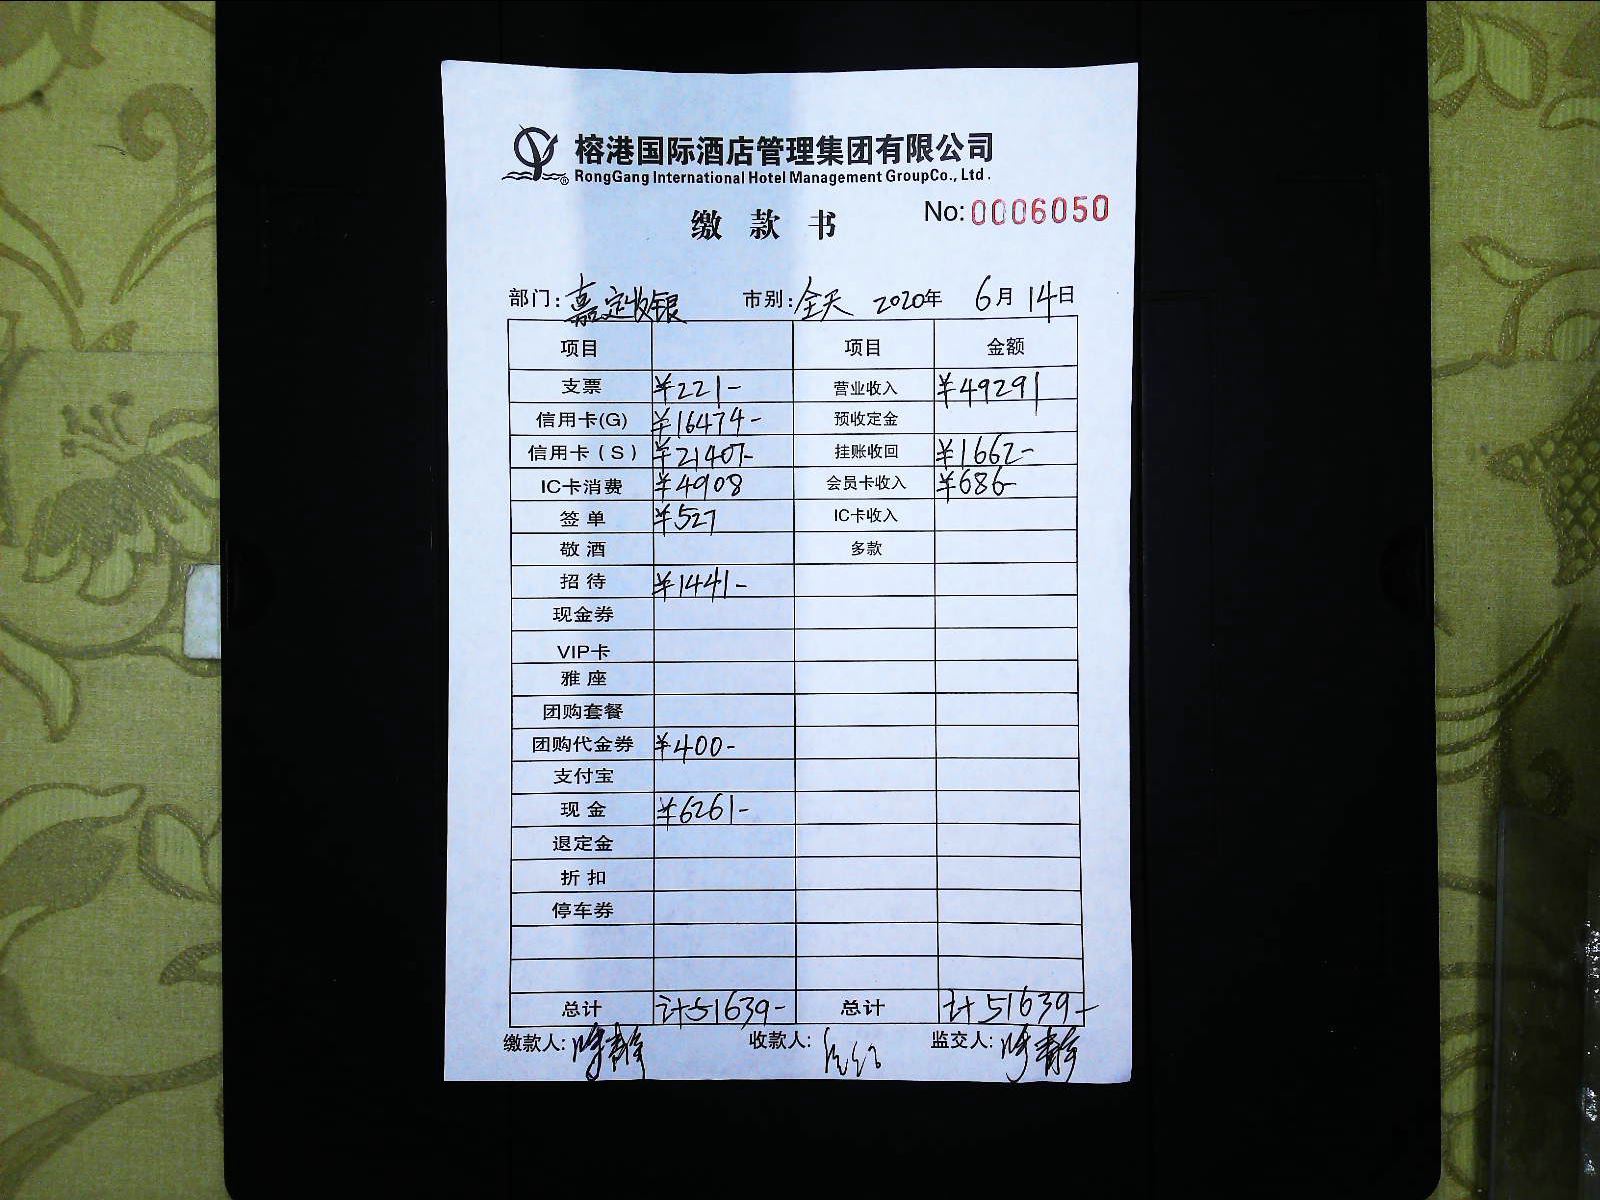 榕港国际酒店管理集团有限公司
RongGang International Hotel Management GroupCo., Ltd.
缴 款 书
No: 0006050
部门: 嘉定收银 市别: 全天 2020年 6月 14日
项目 项目 金额
支票 ¥221- 营业收入 ¥49291
信用卡(G) ¥16474- 预收定金
信用卡(S) ¥21407- 挂账收回 ¥1662-
IC卡消费 ¥4908 会员卡收入 ¥686-
签 单 ¥527 IC卡收入
敬 酒 多款
招 待 ¥1441-
现金券
VIP卡
雅 座
团购套餐
团购代金券 ¥400-
支付宝
现 金 ¥6261-
退定金
折 扣
停车券
总计 计51639- 总计 计51639-
缴款人: 收款人: 监交人: